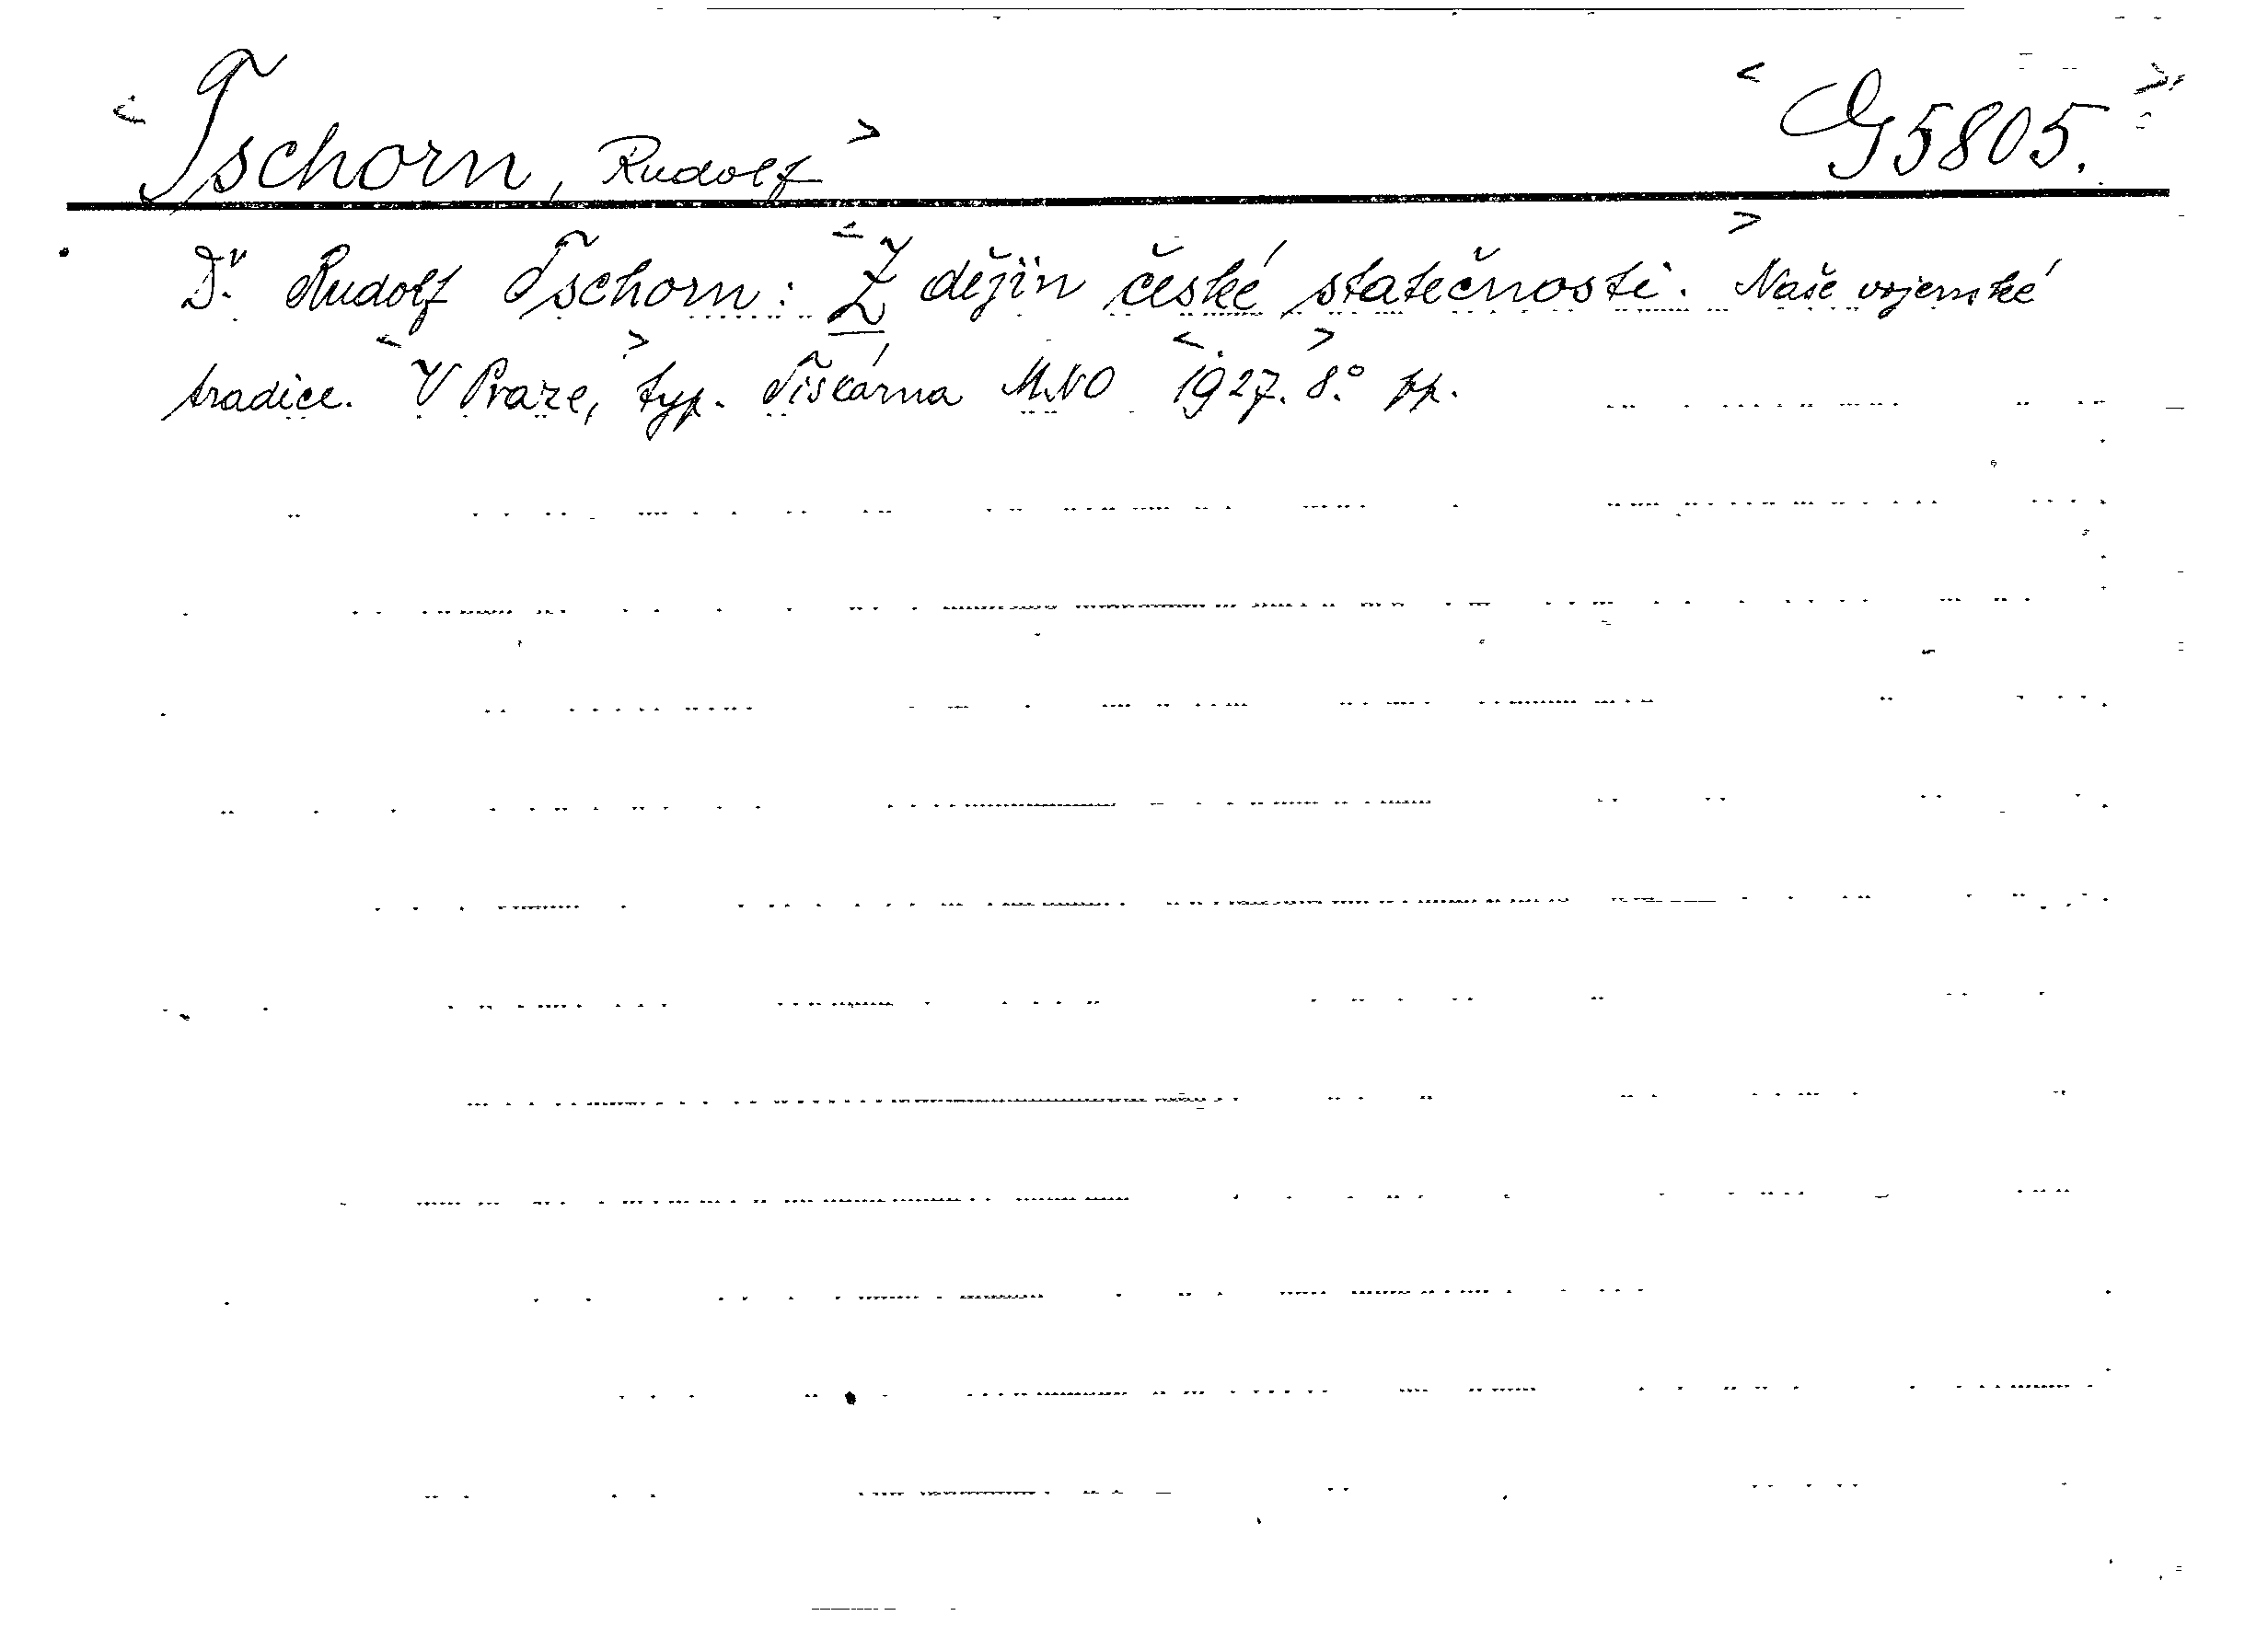 <Tschorn, Rudolf> <G 5805.>
Dr. Rudolf Tschorn: <Z dějin české statečnosti.> Naše vojenské
tradice. <V Praze,> typ. Tiskárna MNO <1927.> 8.° pp.